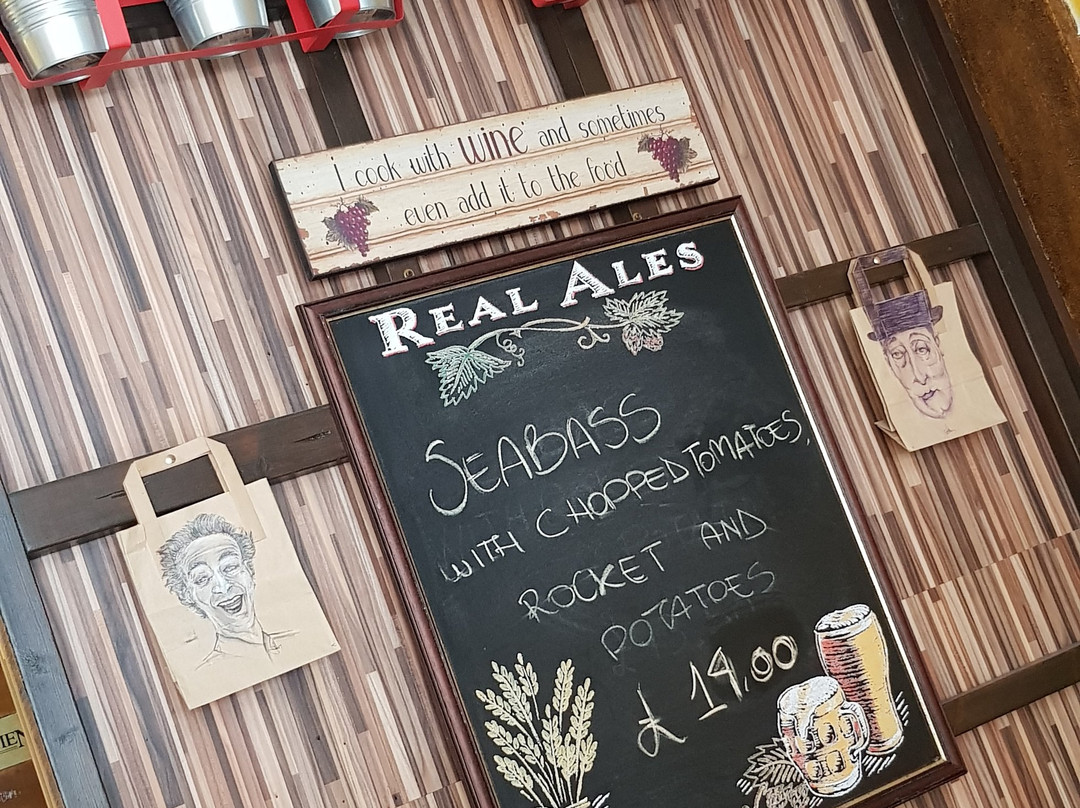 I cook with wine and sometimes
even add it to the food
REAL ALES
SEABASS
WITH CHOPPED TOMATOES,
ROCKET AND
POTATOES
£ 14,00